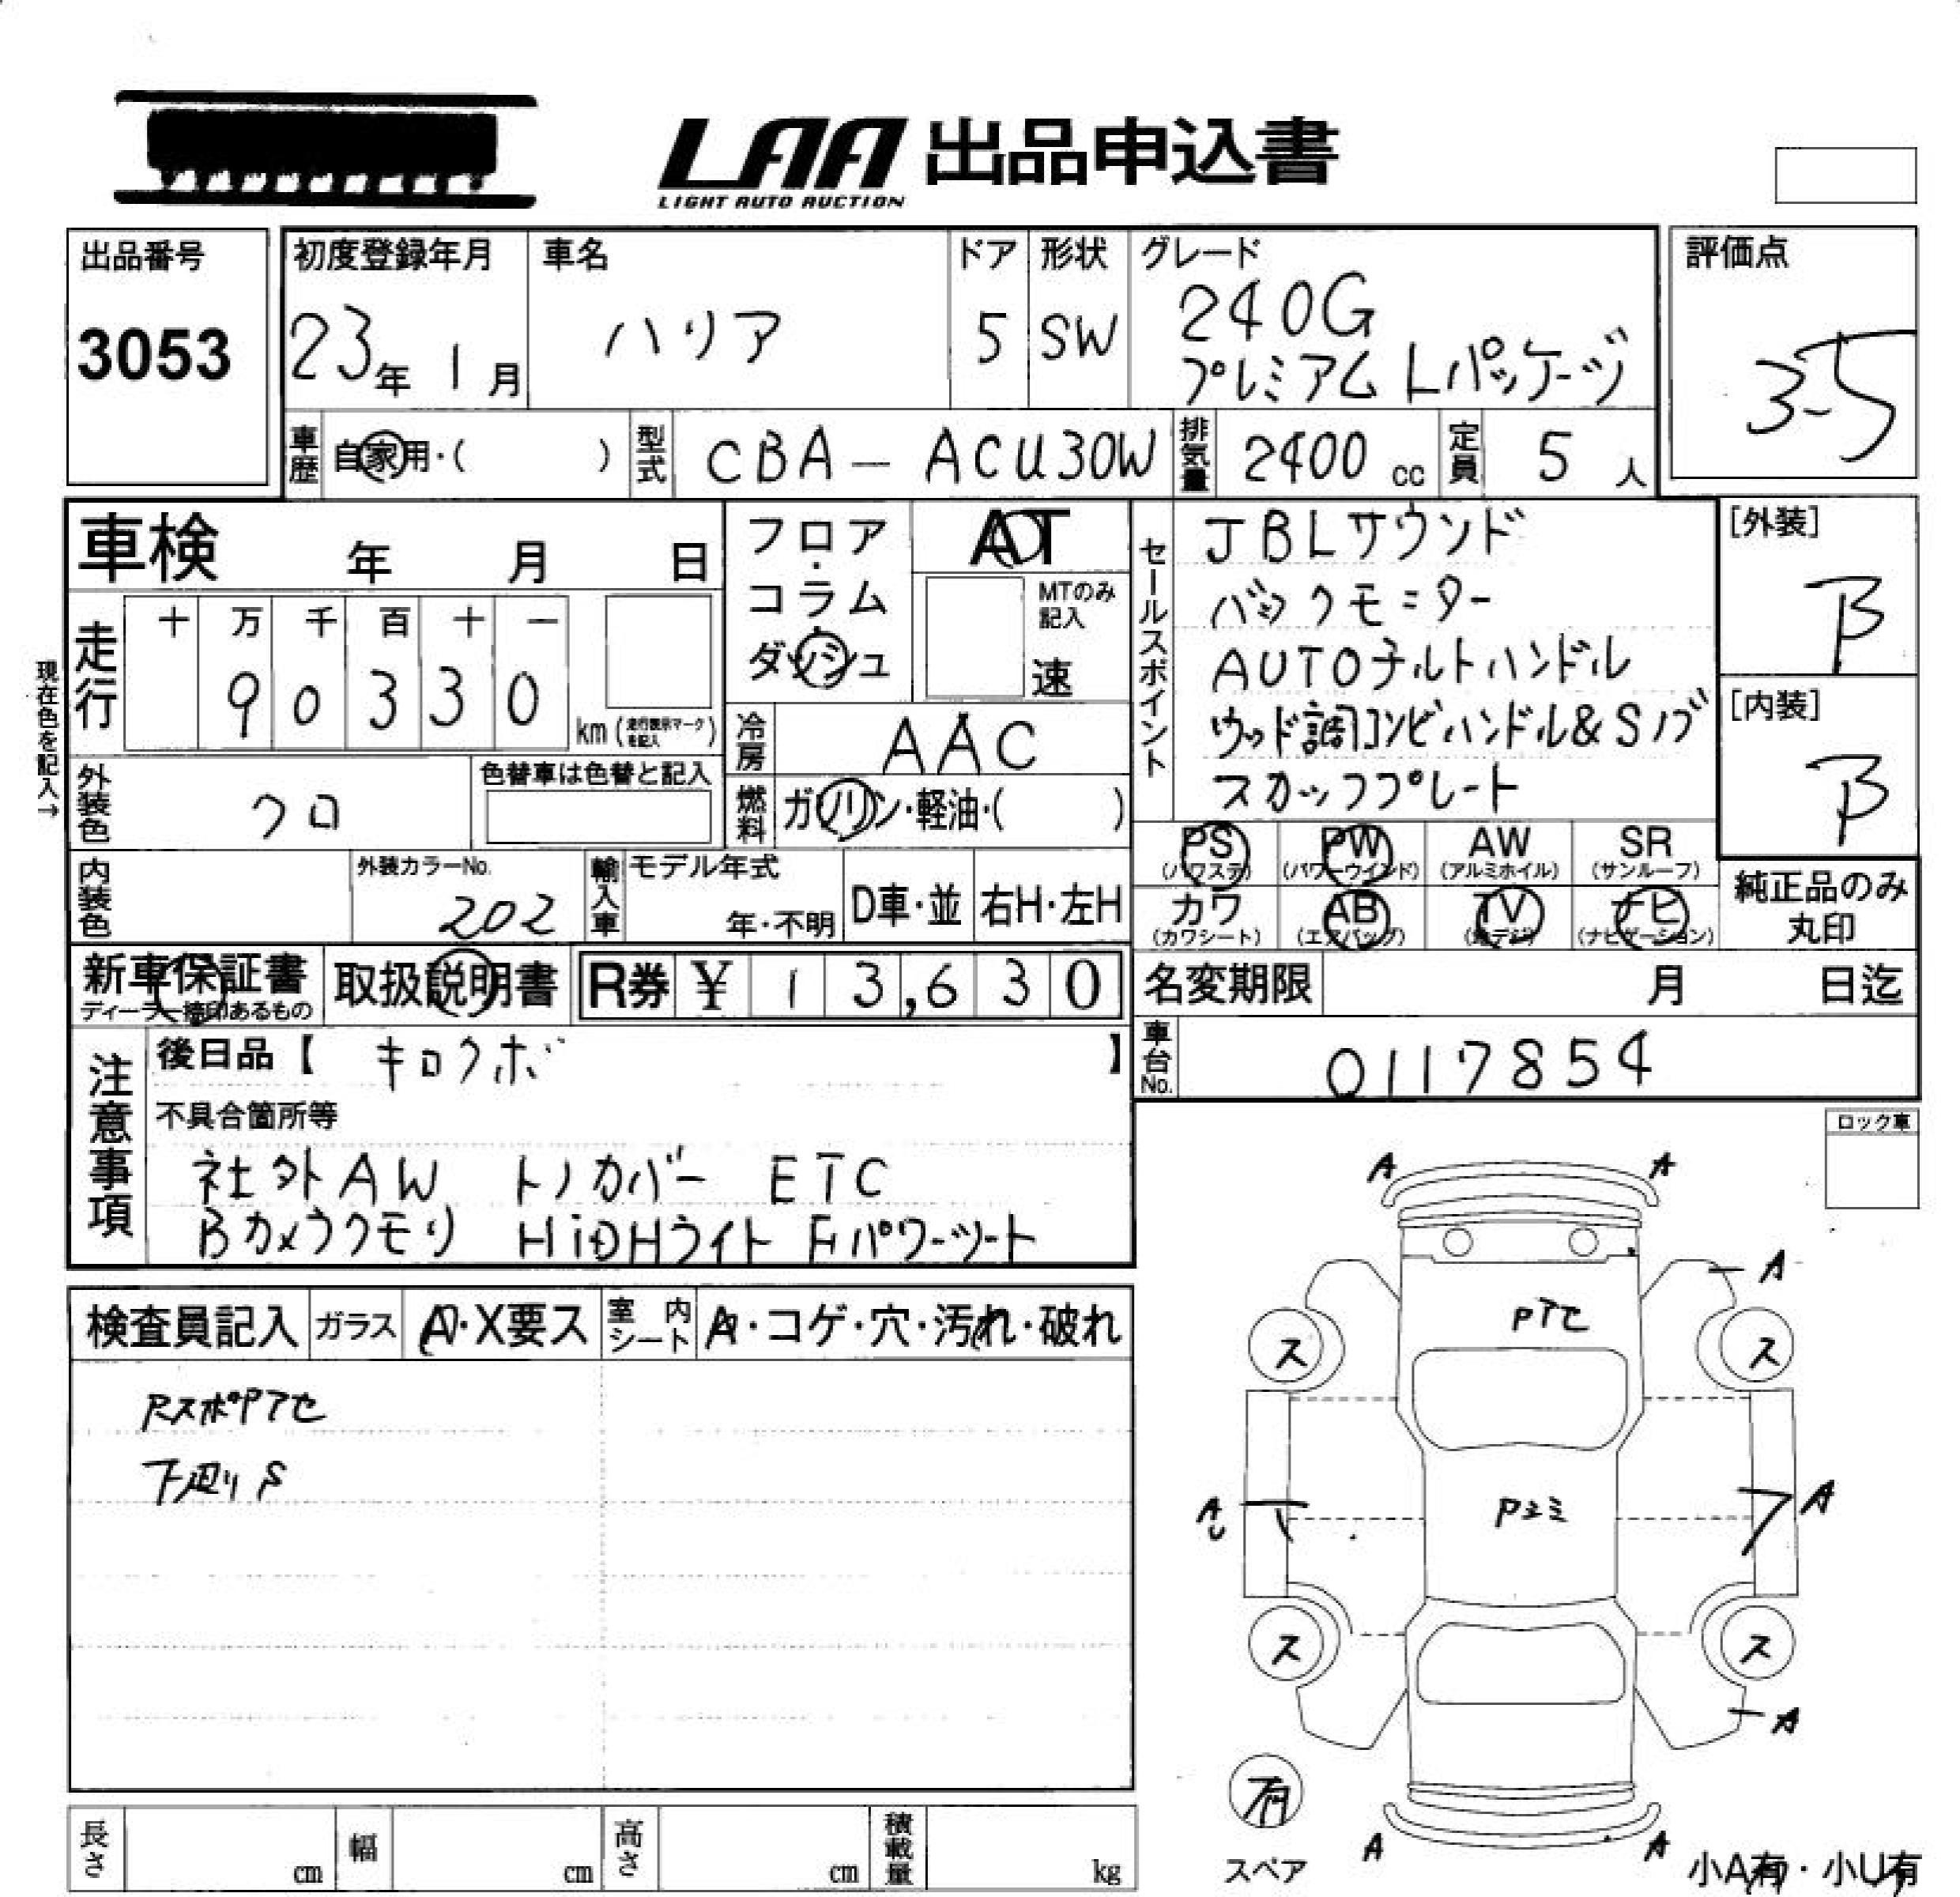 LAA 出品申込書
LIGHT AUTO AUCTION
出品番号
3053
初度登録年月
23年 1月
車名
ハリア
ドア
5
形状
SW
グレード
240G
プレミアム Lパッケージ
評価点
3.5
車歴
自家用・( )
型式
CBA-ACU30W
排気量
2400 cc
定員
5 人
車検 年 月 日
フロア・
コラム・
ダッシュ
AT
MTのみ
記入
速
セールスポイント
JBLサウンド
バックモニター
AUTOチルトハンドル
ウッド調コンビハンドル&Sノブ
スカッフプレート
[外装]
B
[内装]
B
現在色を記入→
走行
十 万 千 百 十 一
9 0 3 3 0
km (走行表示マークを記入)
冷房
AAC
外装色
クロ
色替車は色替と記入
燃料
ガソリン・軽油・( )
PS
(パワステ)
PW
(パワーウインド)
AW
(アルミホイル)
SR
(サンルーフ)
カワ
(カワシート)
AB
(エアバッグ)
TV
(地デジ)
ナビ
(ナビゲーション)
純正品のみ
丸印
内装色
外装カラーNo.
202
輸入車
モデル年式
年・不明
D車・並
右H・左H
新車保証書
ディーラー捺印あるもの
取扱説明書
R券 ¥ 13,630
名変期限 月 日迄
車台No.
0117854
注意事項
後日品【 キロクボ 】
不具合箇所等
社外AW トノカバー ETC
Bカメラクモリ HiDHライト Fパワーシート
ロック車
検査員記入
ガラス
A・X要ス
室内シート
A・コゲ・穴・汚れ・破れ
RスポPアセ
下廻りS
A A
A
Pアセ
ス ス
AU A
Pユミ
ス ス
A
有
スペア
A A
小A有・小U有
長さ cm
幅 cm
高さ cm
積載量 kg